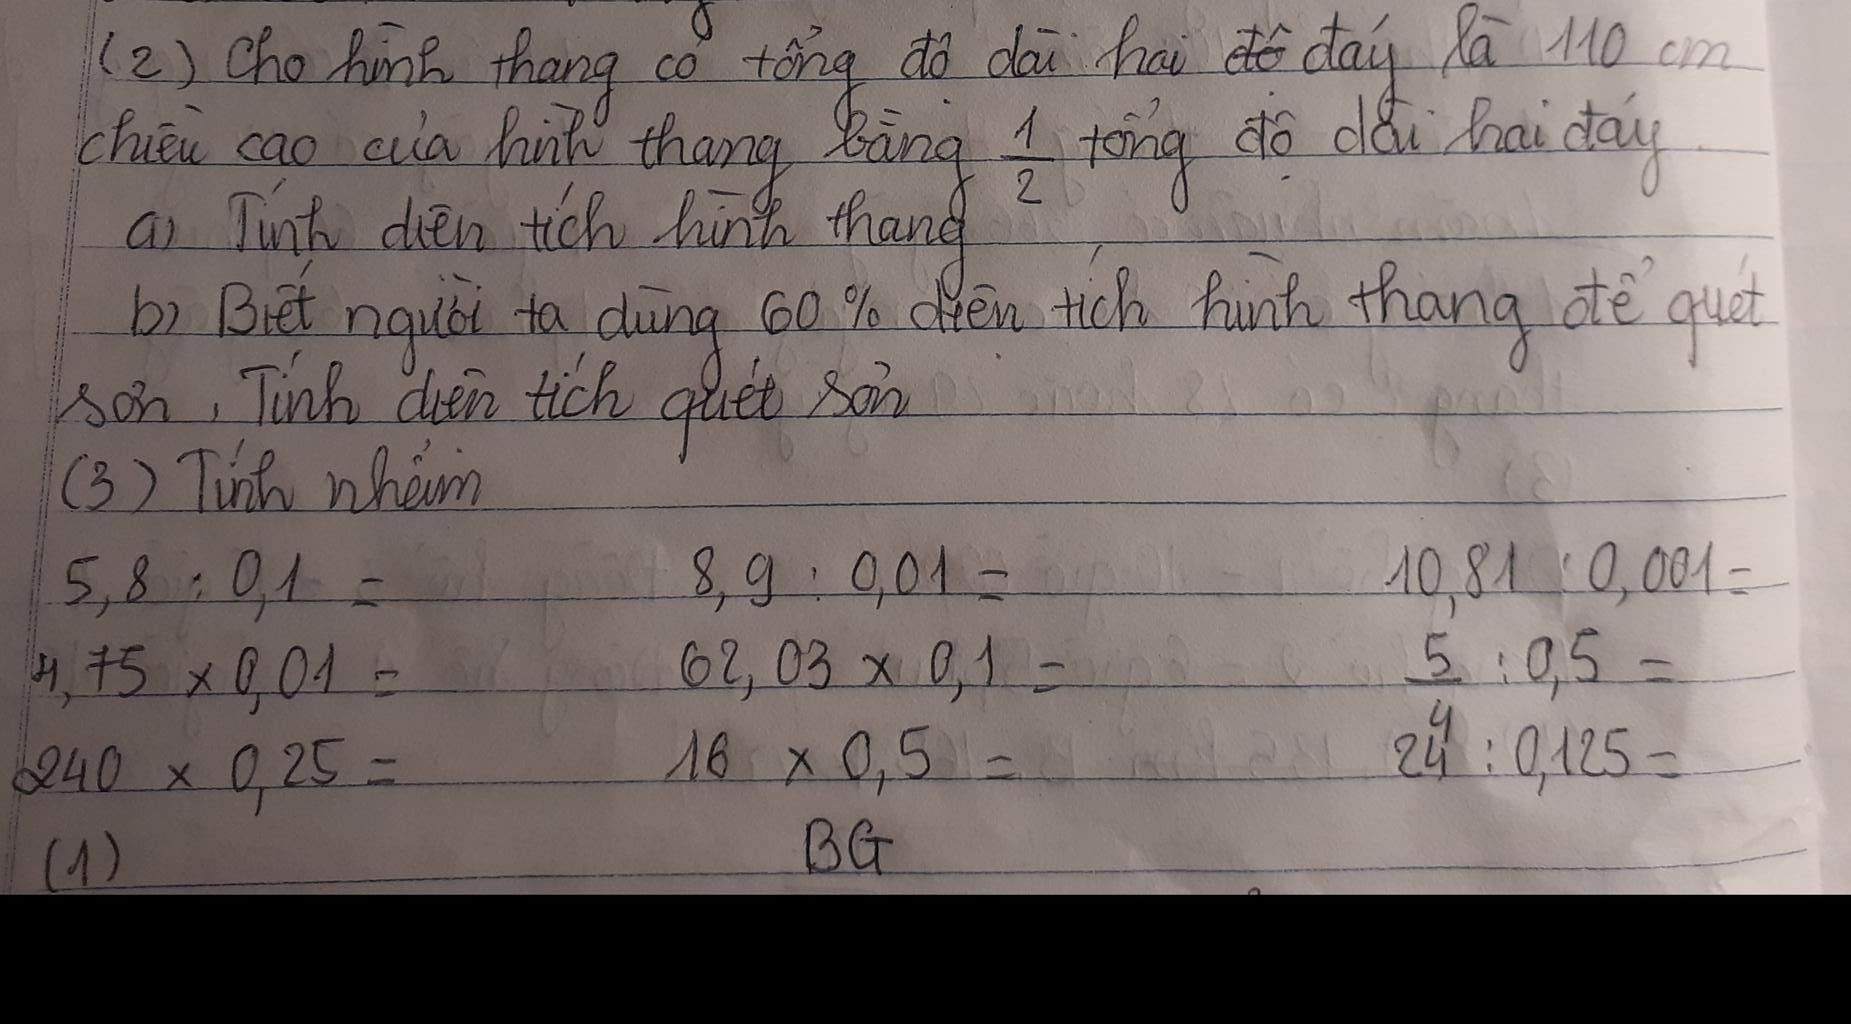 (2) Cho hình thang có tổng độ dài hai đáy là 110 cm
chiều cao của hình thang bằng 1/2 tổng độ dài hai đáy
a) Tính diện tích hình thang
b) Biết người ta dùng 60% diện tích hình thang để quét
sơn, Tính diện tích quét sơn
(3) Tính nhẩm
5,8 : 0,1 = 8,9 : 0,01 = 10,81 : 0,001 =
4,75 x 0,01 = 62,03 x 0,1 = 5/4 : 0,5 =
240 x 0,25 = 16 x 0,5 = 24 : 0,125 =
(1) BG